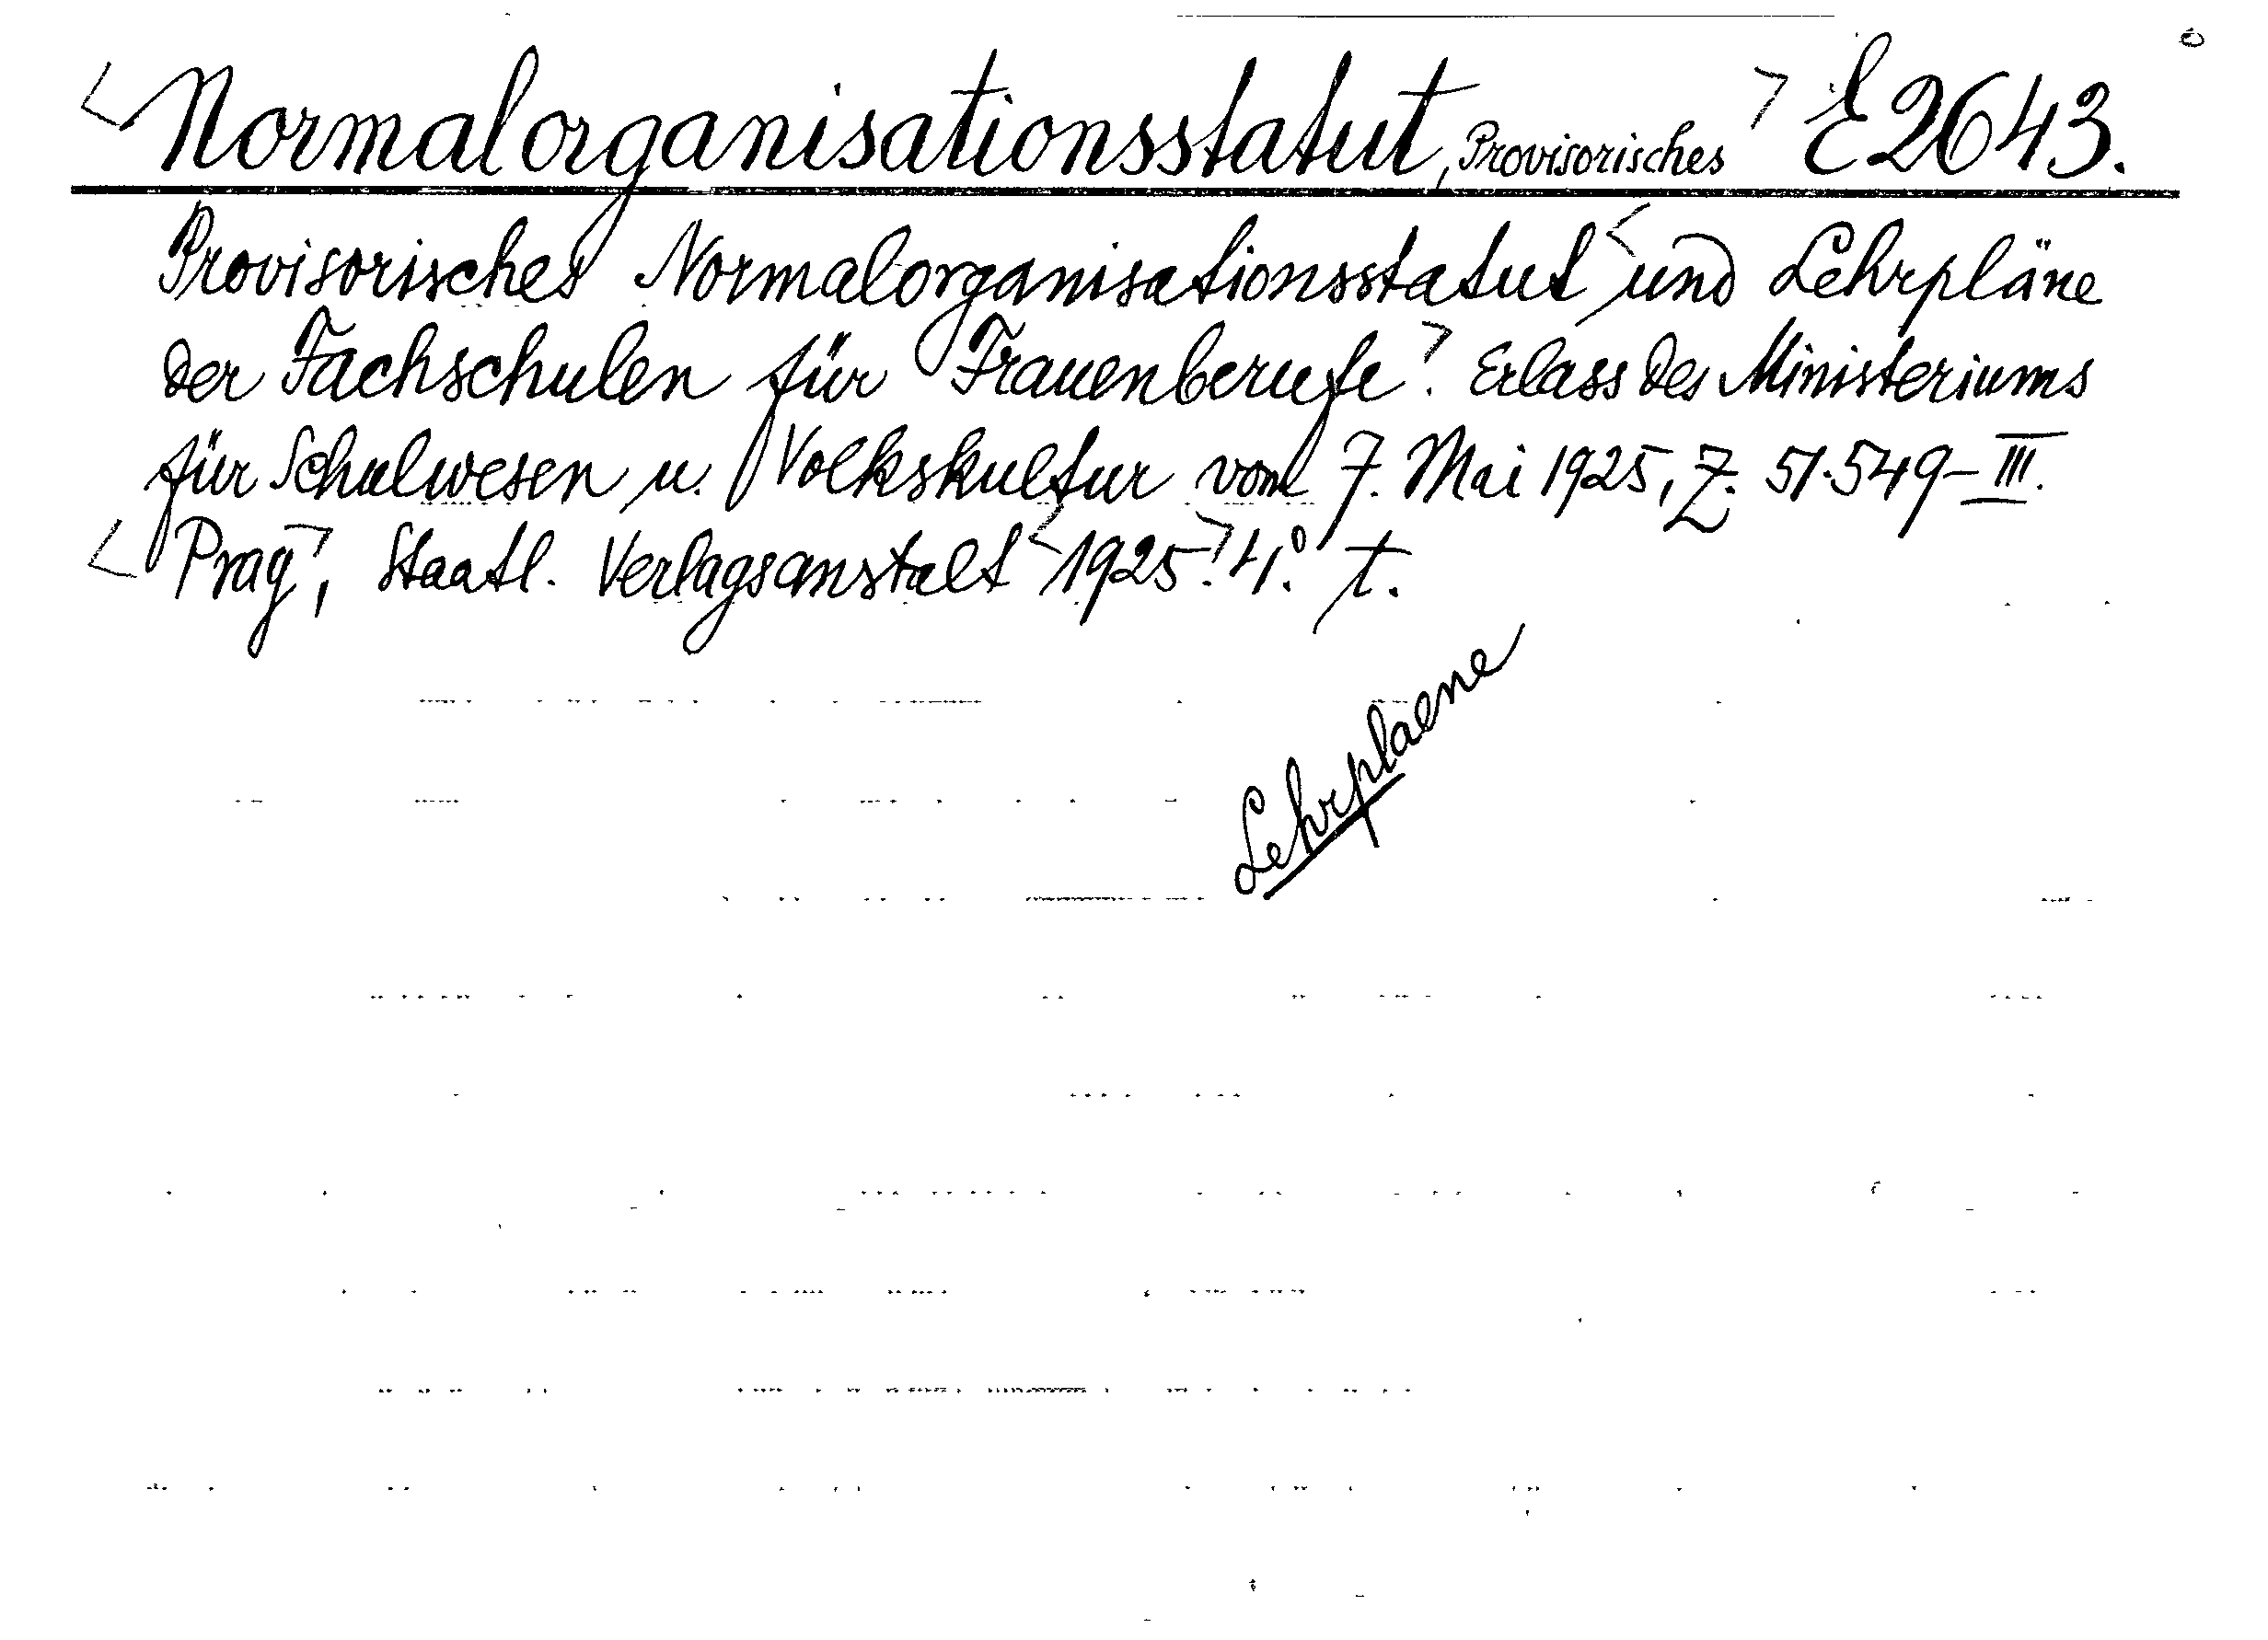 <Normalorganisationsstatut, Provisorisches> E 2643.
Provisorisches Normalorganisationsstatut< und Lehrpläne
der Fachschulen für Frauenberufe>. Erlass des Ministeriums
für Schulwesen u. Volkskultur vom 7. Mai 1925, Z. 51.549-III.
<Prag>, Staatl. Verlagsanstalt <1925>. 4° t.
Lehrplaene